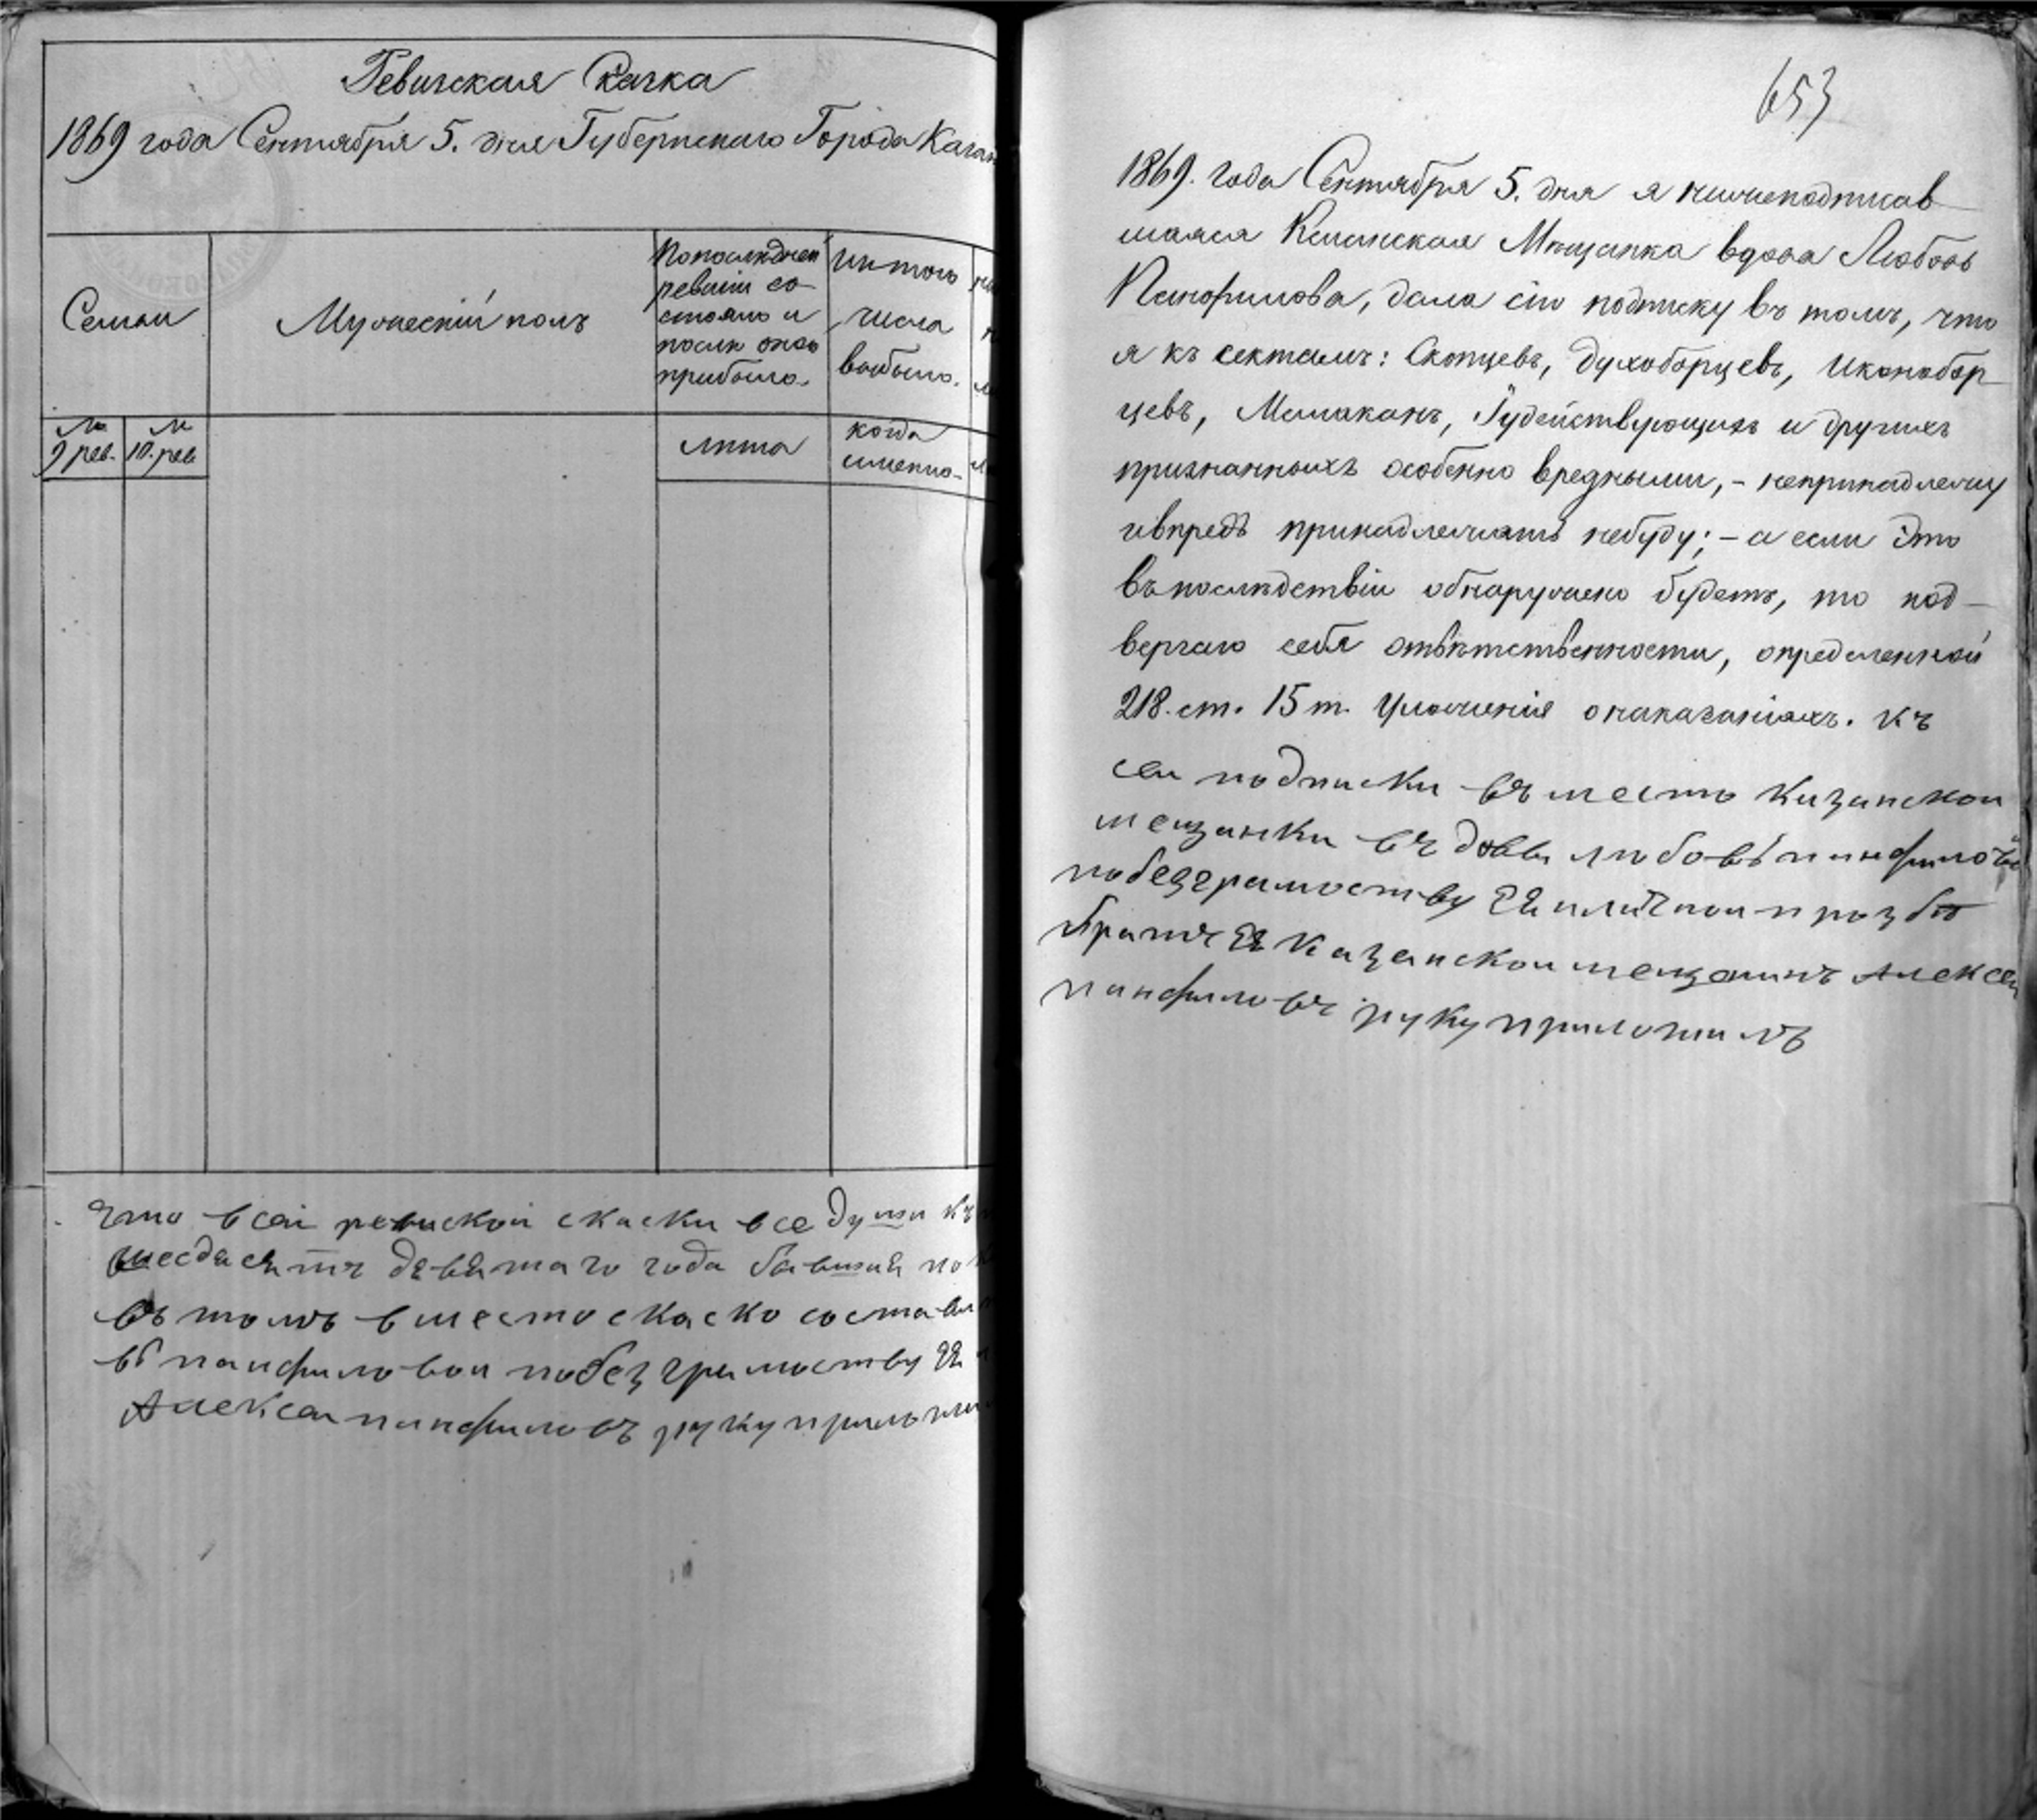 Ревизская Скачка
1869 года Сентября 5. дня Губернскаго Города Казан
Семьи
Мужескій полъ
По последней
ревизіи со-
стояло и
после оной
прибыло.
Изъ того
числа
выбыло.
№
9 рев.
№
10. рев.
лѣта
когда
именно.
что в сей ревиской скаски все души къ
шесдесятъ деветаго года бывшией по
въ томъ вместо скаско состави
вь панфиловои по безграмоству ея
Алексеи панфиловъ руку приложи
653
1869. года Сентября 5. дня я нижеподписав
шаяся Казанская Мѣщанка вдова Любовь
Панфилова, дала сію подписку въ томъ, что
я къ сектамъ: Скопцевъ, Духоборцевъ, Иконобор
цевъ, Малаканъ, Іудействующихъ и другихъ
признанныхъ особенно вредными, - непринадлежу
ивпредъ принадлежать небуду; - а если это
въпослѣдствіи обнаружено будетъ, то под-
вергаю себя отвѣтственности, определенной
218. ст. 15 т. Уложенія онаказаніяхъ. Къ
сеи подписки въместо Казанскои
мещанки въдовы любовь панфиловой
побезграмоству Ея иличнои прозбѣ
братъ Ея Казанскои мещанинъ Алексеи
панфиловъ руку приложилъ